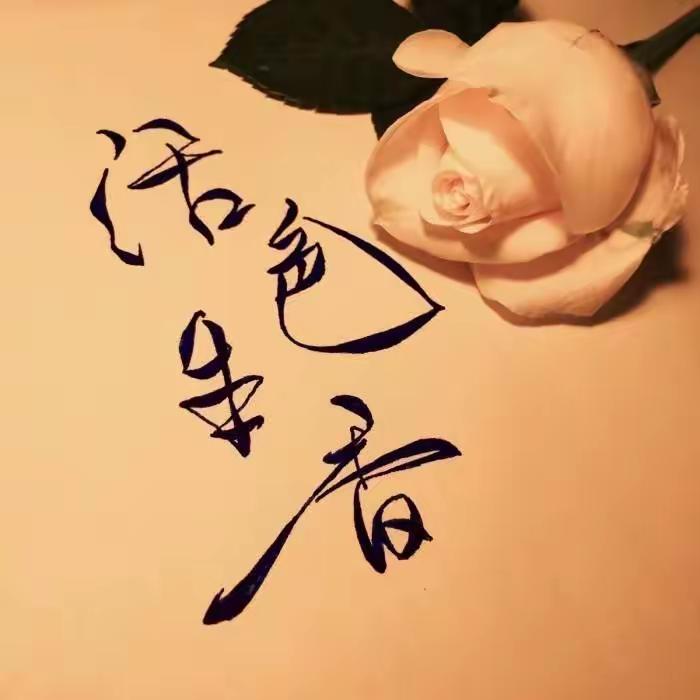 活色
生香